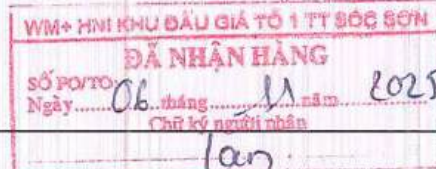 WM+ HNI KHU ĐẤU GIÁ TỔ 1 TT SÓC SƠN
ĐÃ NHẬN HÀNG
SỐ PO/TO
Ngày.....06.tháng........11...năm 2025
Chữ ký người nhận
lan